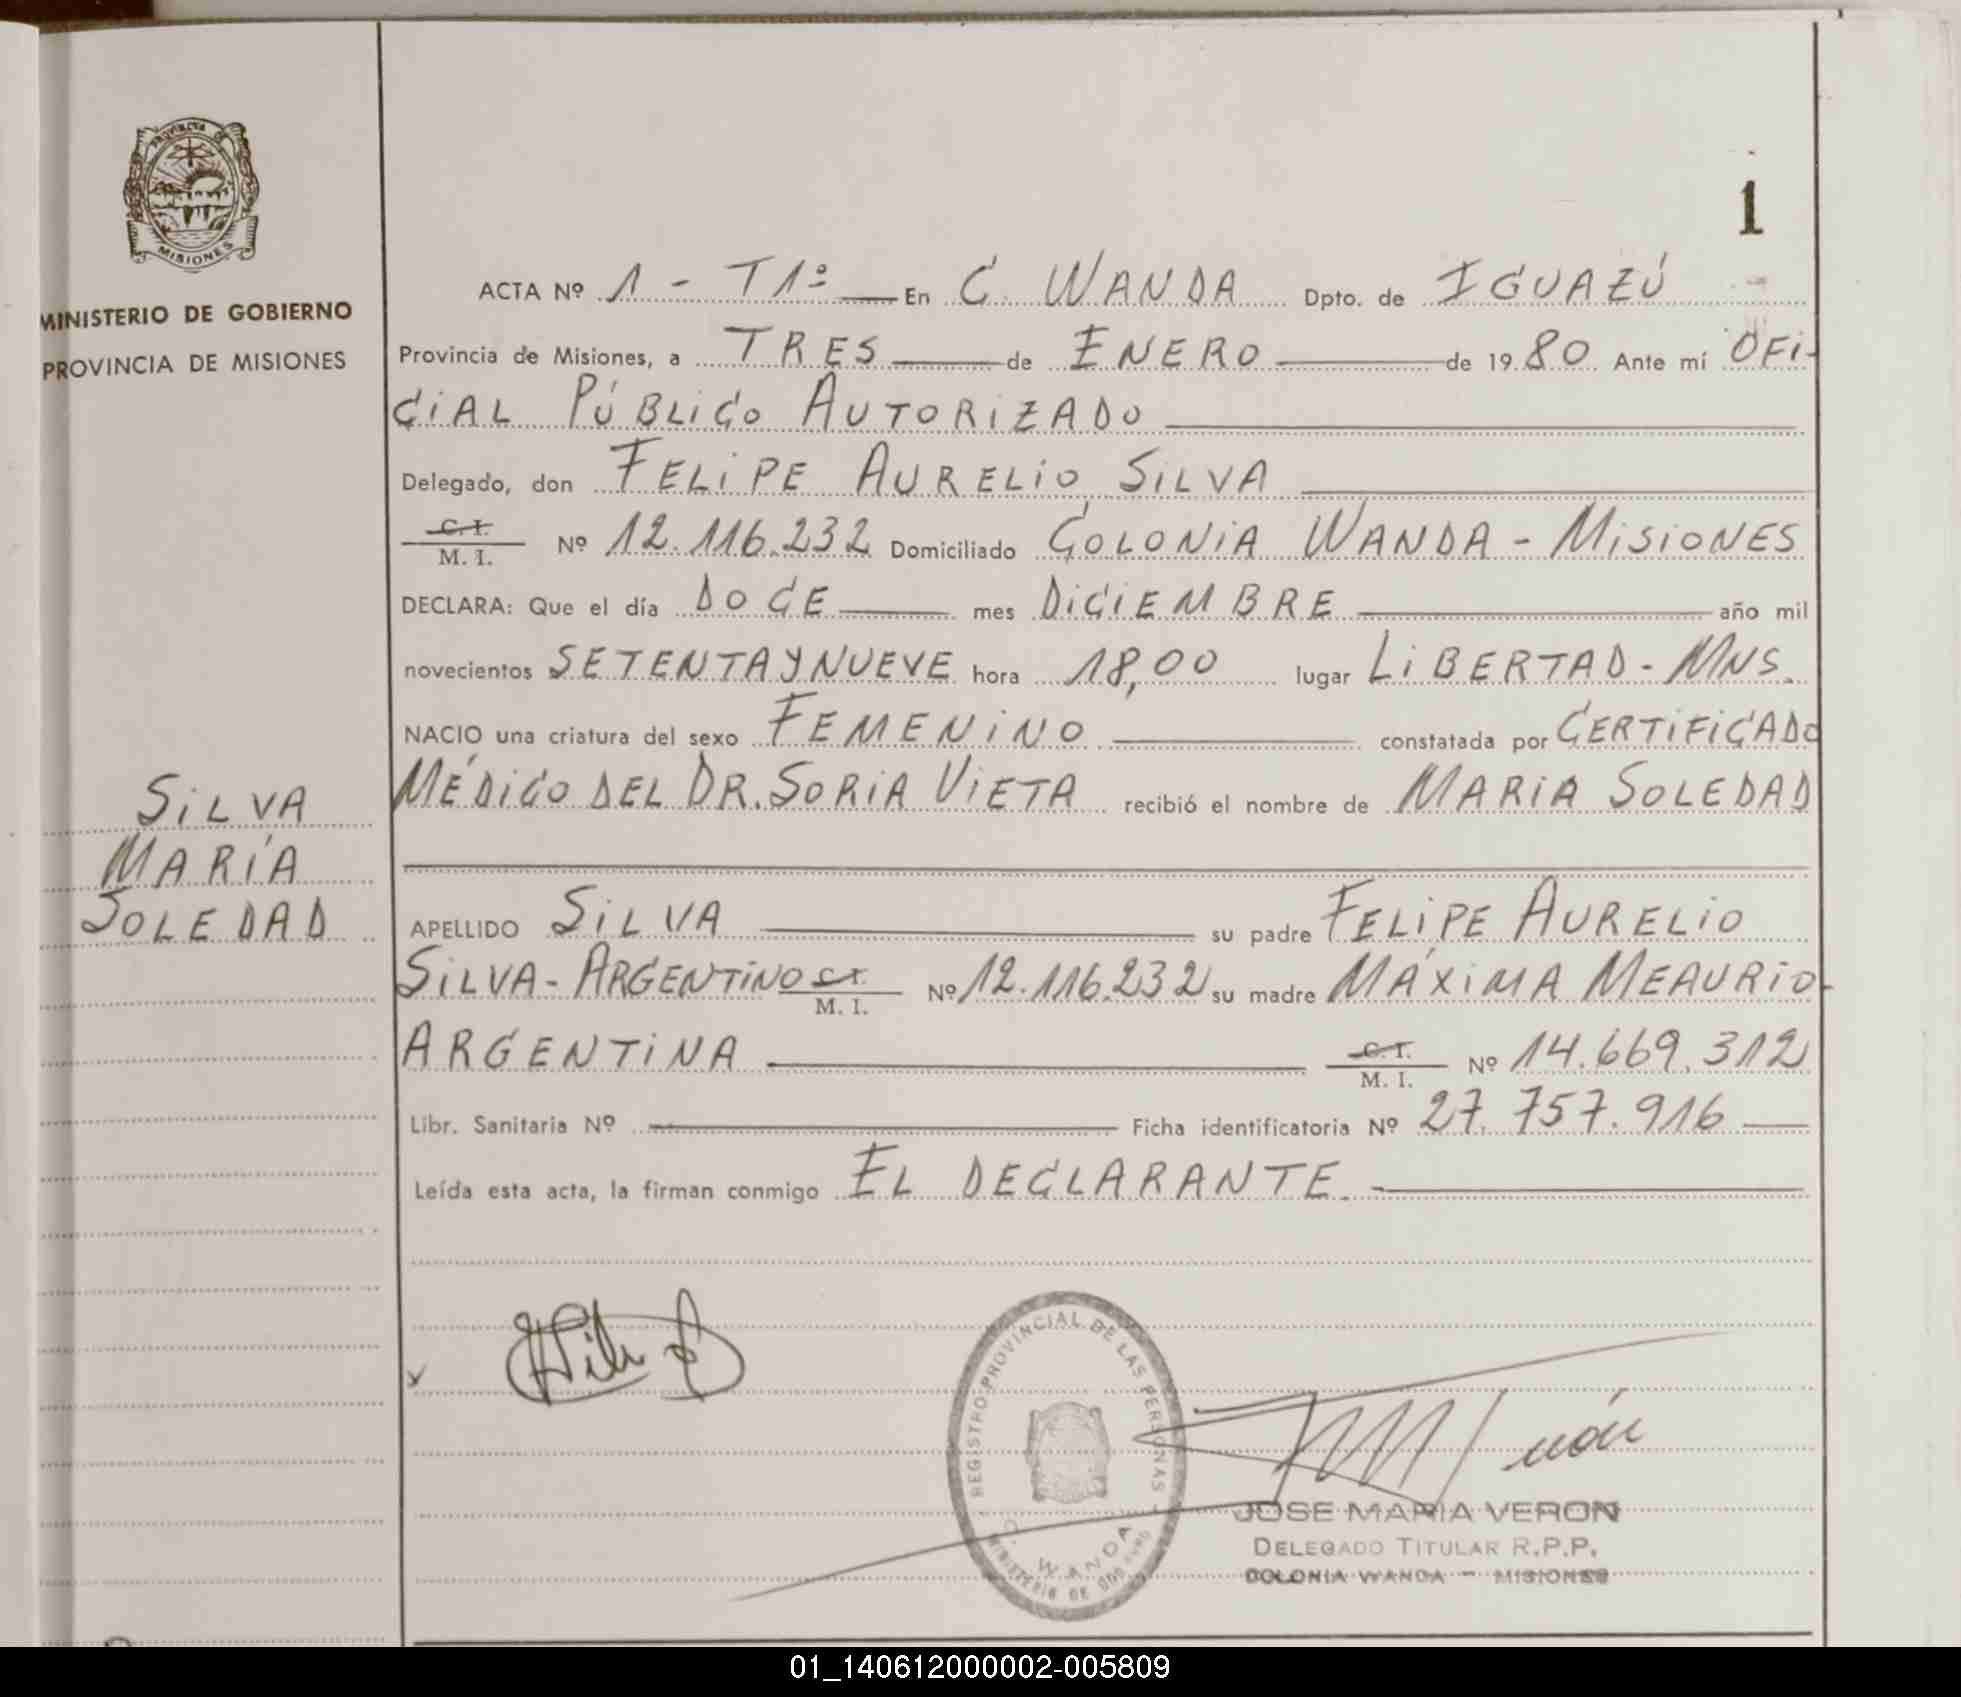 PROVINCIA DE
MISIONES
MINISTERIO DE GOBIERNO
PROVINCIA DE MISIONES
SILVA
MARÍA
SOLEDAD
1
ACTA Nº 1 - T1º En C. WANDA Dpto. de IGUAZÚ
Provincia de Misiones, a TRES de ENERO de 1980 Ante mí OFI-
CIAL PÚBLICO AUTORIZADO
Delegado, don FELIPE AURELIO SILVA
C. I.
M. I. Nº 12.116.232 Domiciliado COLONIA WANDA - MISIONES
DECLARA: Que el día DOCE mes DICIEMBRE año mil
novecientos SETENTA Y NUEVE hora 18,00 lugar LIBERTAD - MNS.
NACIO una criatura del sexo FEMENINO constatada por CERTIFICADO
MÉDICO DEL DR. SORIA VIETA recibió el nombre de MARIA SOLEDAD
APELLIDO SILVA su padre FELIPE AURELIO
SILVA - ARGENTINO C.I. M. I. Nº 12.116.232 su madre MÁXIMA MEAURIO-
ARGENTINA C. I. M. I. Nº 14.669.312
Libr. Sanitaria Nº Ficha identificatoria Nº 27.757.916
Leída esta acta, la firman conmigo EL DECLARANTE.
REGISTRO PROVINCIAL DE LAS PERSONAS
C. WANDA
MINISTERIO DE GOBIERNO
JOSE MARIA VERON
DELEGADO TITULAR R.P.P.
COLONIA WANDA - MISIONES
01_140612000002-005809